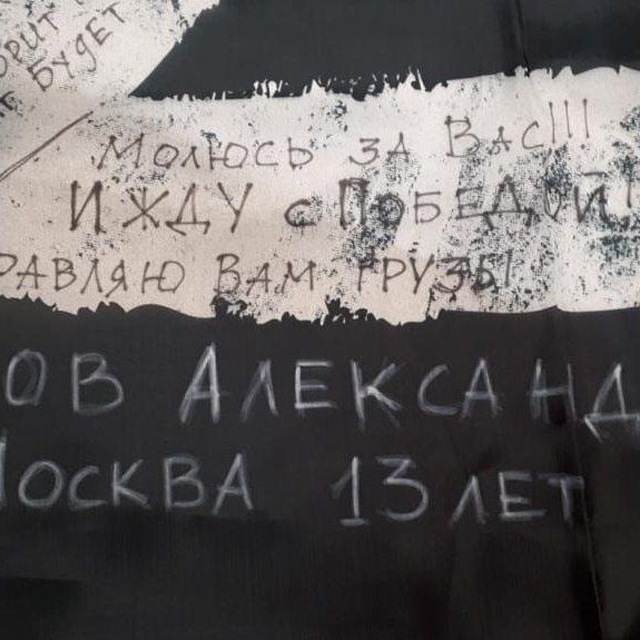 ОРИТ
БУДЕТ
МОЛЮСЬ ЗА ВАС!!!
И ЖДУ с ПОБЕДОЙ!
РАВЛЯЮ ВАМ ГРУЗЫ!
ОВ АЛЕКСАНД
МОСКВА 13 ЛЕТ